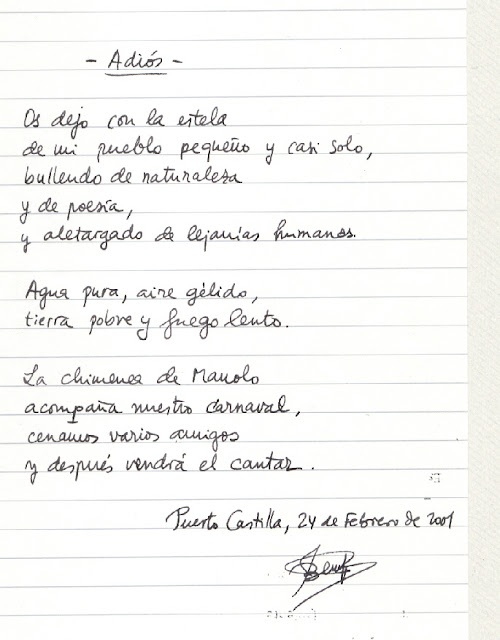 - Adiós -
Os dejo con la estela
de mi pueblo pequeño y casi solo,
bullendo de naturaleza
y de poesía,
y aletargado de lejanías humanas.
Agua pura, aire gélido,
tierra pobre y fuego lento.
La chimenea de Manolo
acompaña nuestro carnaval,
cenamos varios amigos
y después vendrá el cantar.
Puerto Castilla, 24 de Febrero de 2001